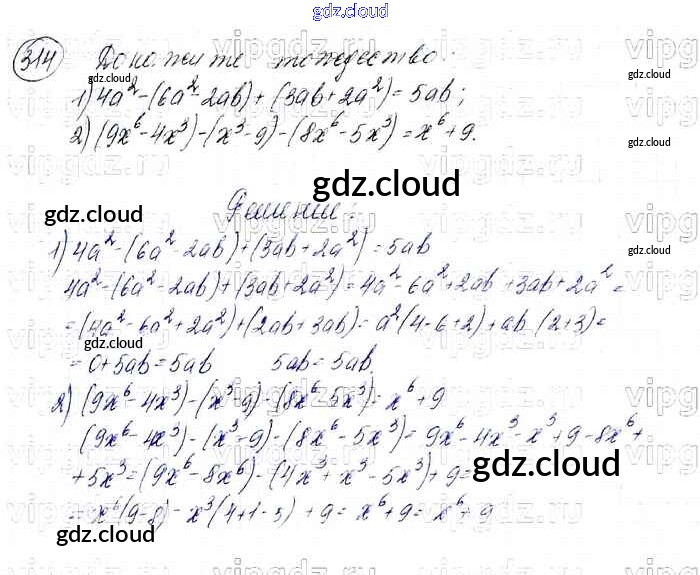 gdz.cloud
314 Докажите тождество:
1) 4a² - (6a² - 2ab) + (3ab + 2a²) = 5ab;
2) (9x⁶ - 4x³) - (x³ - 9) - (8x⁶ - 5x³) = x⁶ + 9.
gdz.cloud
gdz.cloud
gdz.cloud
Решение:
1) 4a² - (6a² - 2ab) + (3ab + 2a²) = 5ab
4a² - (6a² - 2ab) + (3ab + 2a²) = 4a² - 6a² + 2ab + 3ab + 2a² =
= (4a² - 6a² + 2a²) + (2ab + 3ab) = a²(4-6+2) + ab (2+3) =
= 0 + 5ab = 5ab 5ab = 5ab.
2) (9x⁶ - 4x³) - (x³ - 9) - (8x⁶ - 5x³) = x⁶ + 9
(9x⁶ - 4x³) - (x³ - 9) - (8x⁶ - 5x³) = 9x⁶ - 4x³ - x³ + 9 - 8x⁶ +
+ 5x³ = (9x⁶ - 8x⁶) - (4x³ + x³ - 5x³) + 9 =
= x⁶(9-8) - x³(4+1-5) + 9 = x⁶ + 9 = x⁶ + 9
gdz.cloud
gdz.cloud